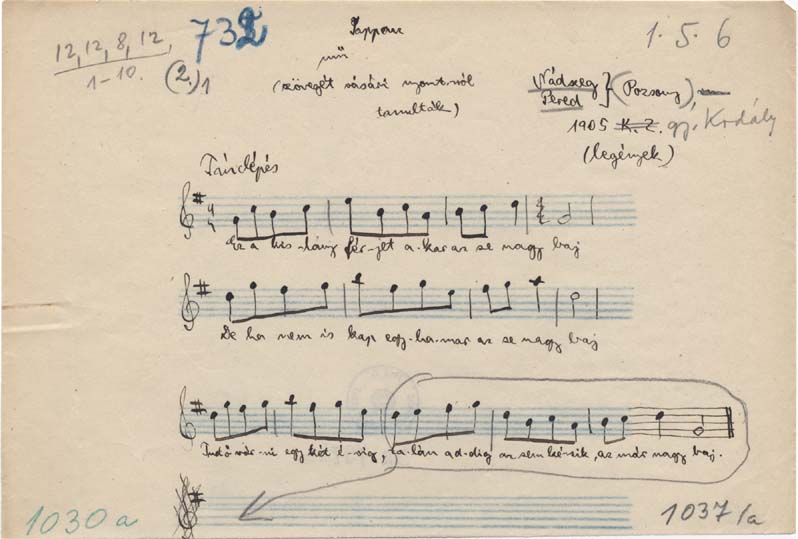 12, 12, 8, 12,
1–10.
732
(2.)1
1. 5. 6
mű
(szövegét vásári nyomt.ról
tanulták)
Nádszeg
Pered } (Pozsony)
1905 K. Z. gy. Kodály
(legények)
Ez a kis-lány fér-jet a-kar az se nagy baj
De ha nem is kap egy-ha-mar az se nagy baj
Tud ő vár-ni egy két é-vig, ta-lán ad-dig az sem ké-sik, az már nagy baj.
1030a
1037/a